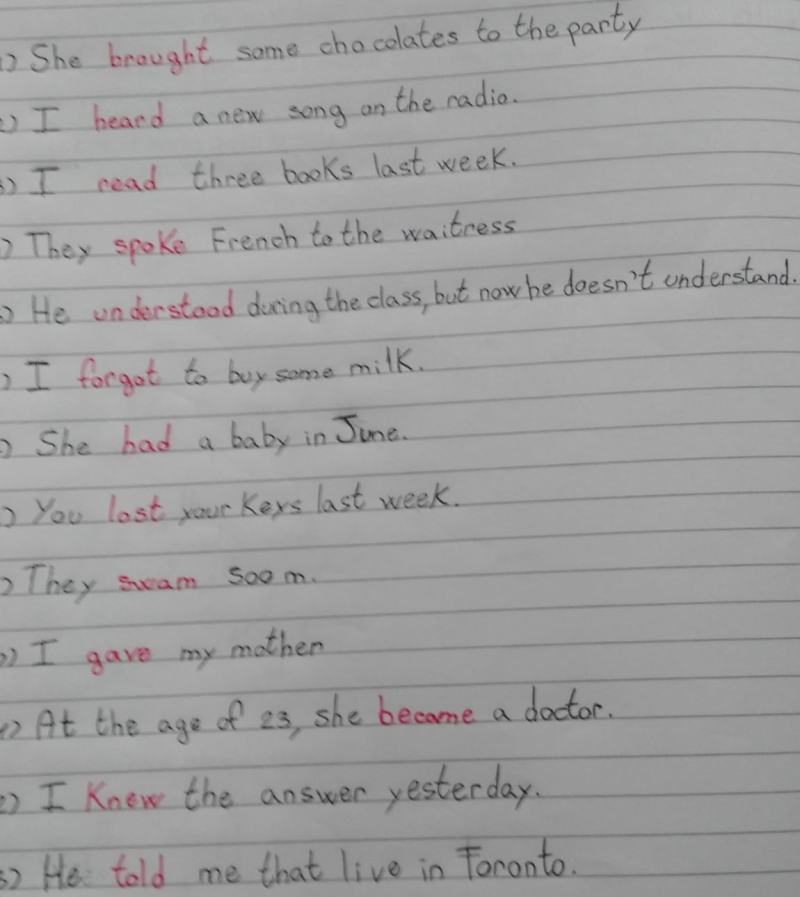 1) She brought some chocolates to the party
2) I heard a new song on the radio.
3) I read three books last week.
) They spoke French to the waitress
5) He understood during the class, but now he doesn't understand.
) I forgot to buy some milk.
) She had a baby in June.
) You lost your Keys last week.
) They swam 500 m.
0) I gave my mother
1) At the age of 23, she became a doctor.
2) I Knew the answer yesterday.
3) He told me that live in Toronto.